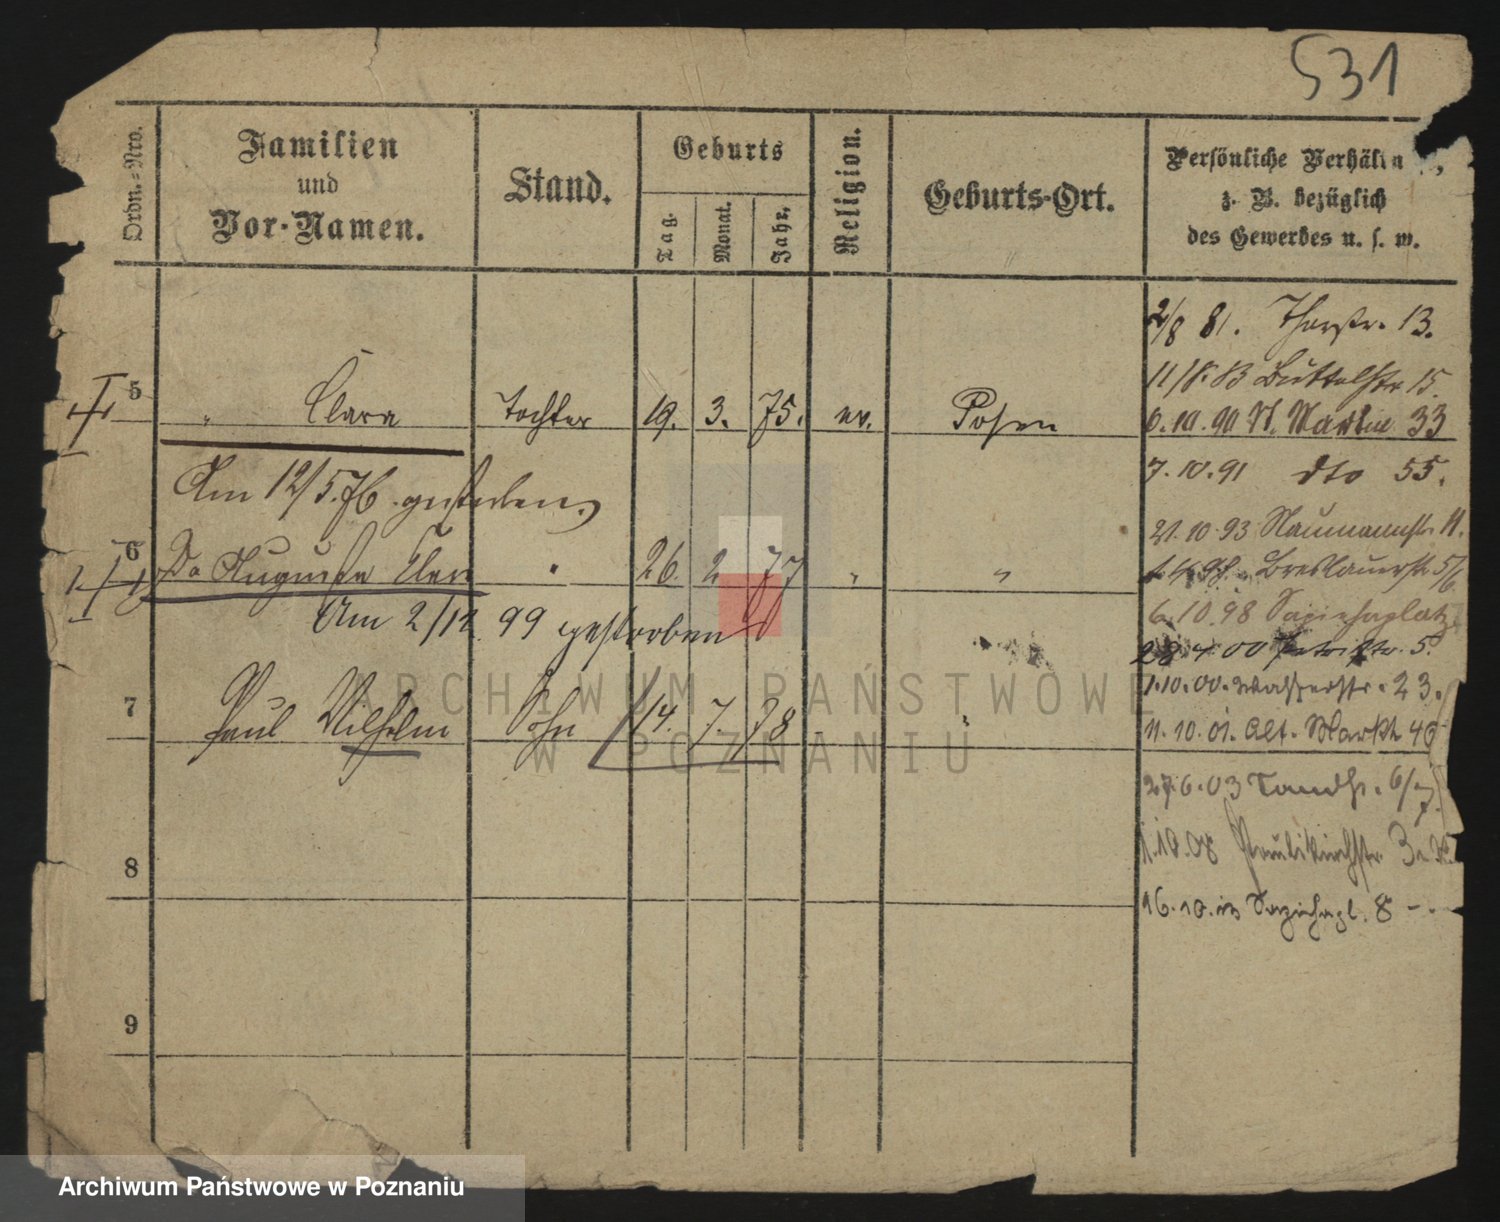 531
Ordn.-Nro.
Familien
und
Vor-Namen.
Stand.
Geburts
Tag.
Monat.
Jahr.
Religion.
Geburts-Ort.
Persönliche Verhältn
z. B. bezüglich
des Gewerbes u. s. w.
2/8 81. Thorstr. 13.
11/8. 83 Büttelstr 15.
5 " Clara Tochter 19. 3. 75. ev. Posen
6.10.90 St. Martin 33
7.10.91 dto 55.
Am 12/5.76 gestorben
21.10.93 Naumannstr. 11.
6 Auguste " 26. 2. 77 " "
Breslauerstr. 5/6
Am 2/12. 99 gestorben
6.10.98 Sapiehaplatz
28 4 00 Petristr. 5.
1.10.00. Wasserstr. 23.
7 Paul Wilhelm Sohn 14. 7. 78 "
11.10.01. Alt. Markt 46
27.6.03 6/7.
1.10.08 Paulikirchstr. 3
8
16.10. Sapiehapl. 8
9
ARCHIWUM PAŃSTWOWE
W POZNANIU
Archiwum Państwowe w Poznaniu